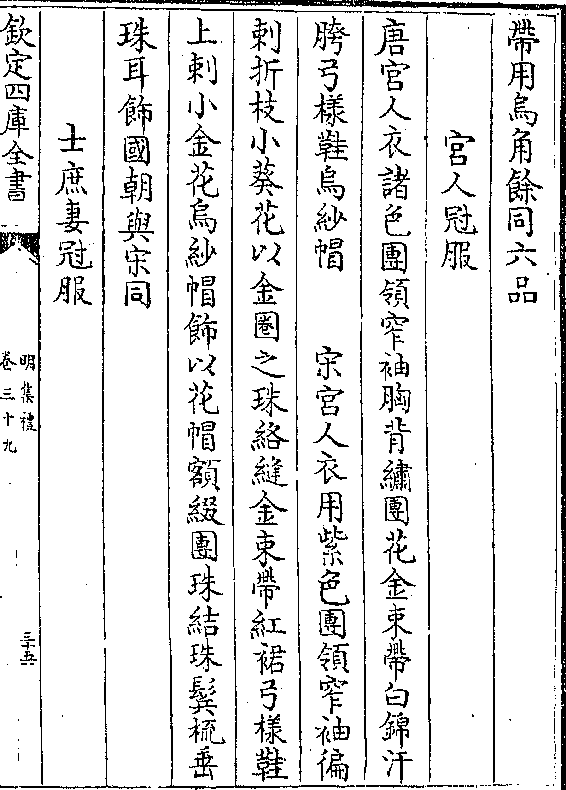 帶用烏角餘同六品
宮人冠服
唐宮人衣諸色團領窄袖胸背繡團花金束帶白錦汗
胯弓樣鞋烏紗帽　宋宮人衣用紫色團領窄袖徧
刺折枝小葵花以金圈之珠絡縫金束帶紅裙弓樣鞋
上刺小金花烏紗帽飾以花帽額綴團珠結珠鬂梳垂
珠耳飾國朝與宋同
士庶妻冠服
欽定四庫全書
明集禮
卷三十九
三十五